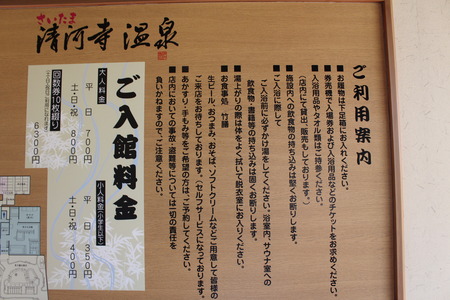 さいたま
清河寺温泉
ご利用案内
■お履物は下足箱にお入れください。
■券売機で入場券および入浴用品などのチケットをお求めください。
■入浴用品やタオル類はご持参ください。
(店内にて貸出・販売もしております。)
■施設内への飲食物の持ち込みは堅くお断りします。
■ご入浴に際して
ご入浴前に必ずかけ湯をしてください。浴室内、サウナ室への
飲食物・書籍等の持ち込みは固くお断りします。
■湯上がりの際は体をよく拭いて脱衣室にお入りください。
■お食事処
生ビール、おつまみ、おそば、ソフトクリームなどご用意して皆様の
ご来店をお待ちしております。(セルフサービスになっております。)
■あかすり・手もみ等をご希望の方は、ご予約してください。
■店内においての事故・盗難等については一切の責任を
負いかねますので、ご注意ください。
ご入館料金
大人料金
平日 700円
土・日・祝 800円
小人料金(小学生以下)
平日 350円
土・日・祝 400円
回数券10枚綴り
6300円